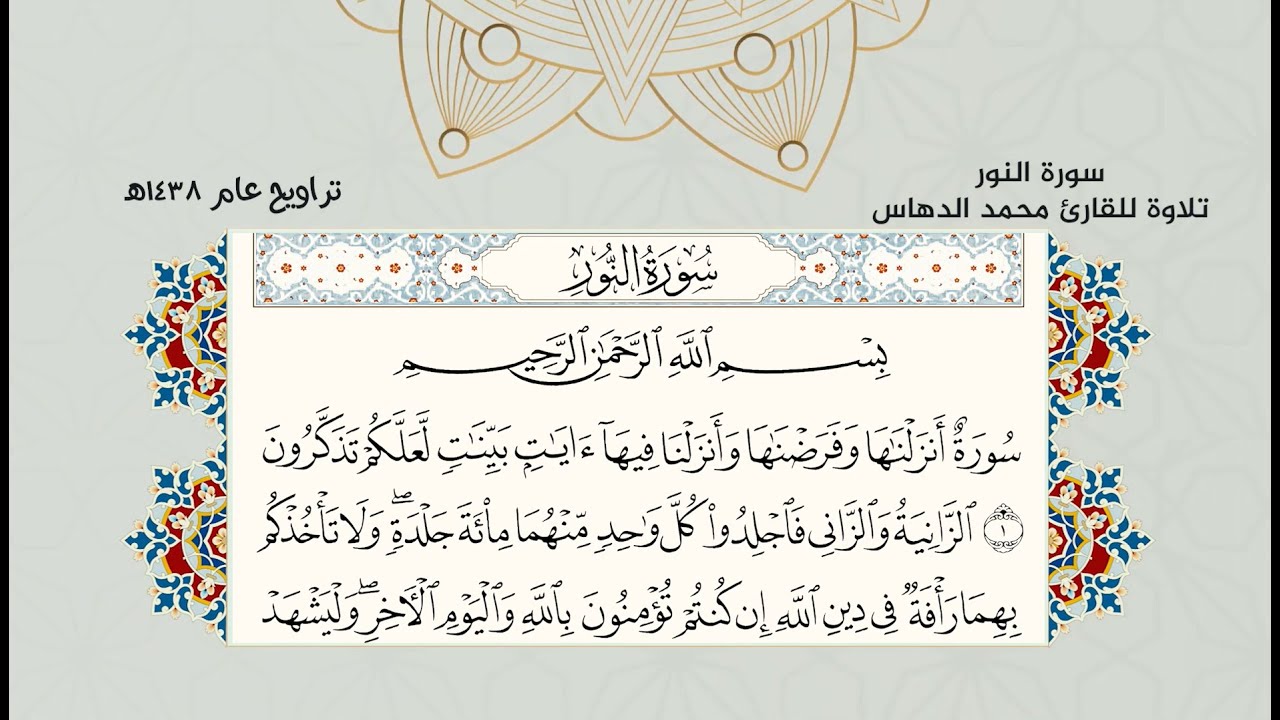 سورة النور
تلاوة للقارئ محمد الدهاس
تراويح عام ١٤٣٨هـ
سُورَةُ النُّورِ
بِسْمِ ٱللَّهِ ٱلرَّحْمَٰنِ ٱلرَّحِيمِ
سُورَةٌ أَنزَلْنَٰهَا وَفَرَضْنَٰهَا وَأَنزَلْنَا فِيهَآ ءَايَٰتٍۭ بَيِّنَٰتٍ لَّعَلَّكُمْ تَذَكَّرُونَ
١ ٱلزَّانِيَةُ وَٱلزَّانِى فَٱجْلِدُوا۟ كُلَّ وَٰحِدٍ مِّنْهُمَا مِا۟ئَةَ جَلْدَةٍ ۖ وَلَا تَأْخُذْكُم
بِهِمَا رَأْفَةٌ فِى دِينِ ٱللَّهِ إِن كُنتُمْ تُؤْمِنُونَ بِٱللَّهِ وَٱلْيَوْمِ ٱلْءَاخِرِ ۖ وَلْيَشْهَدْ